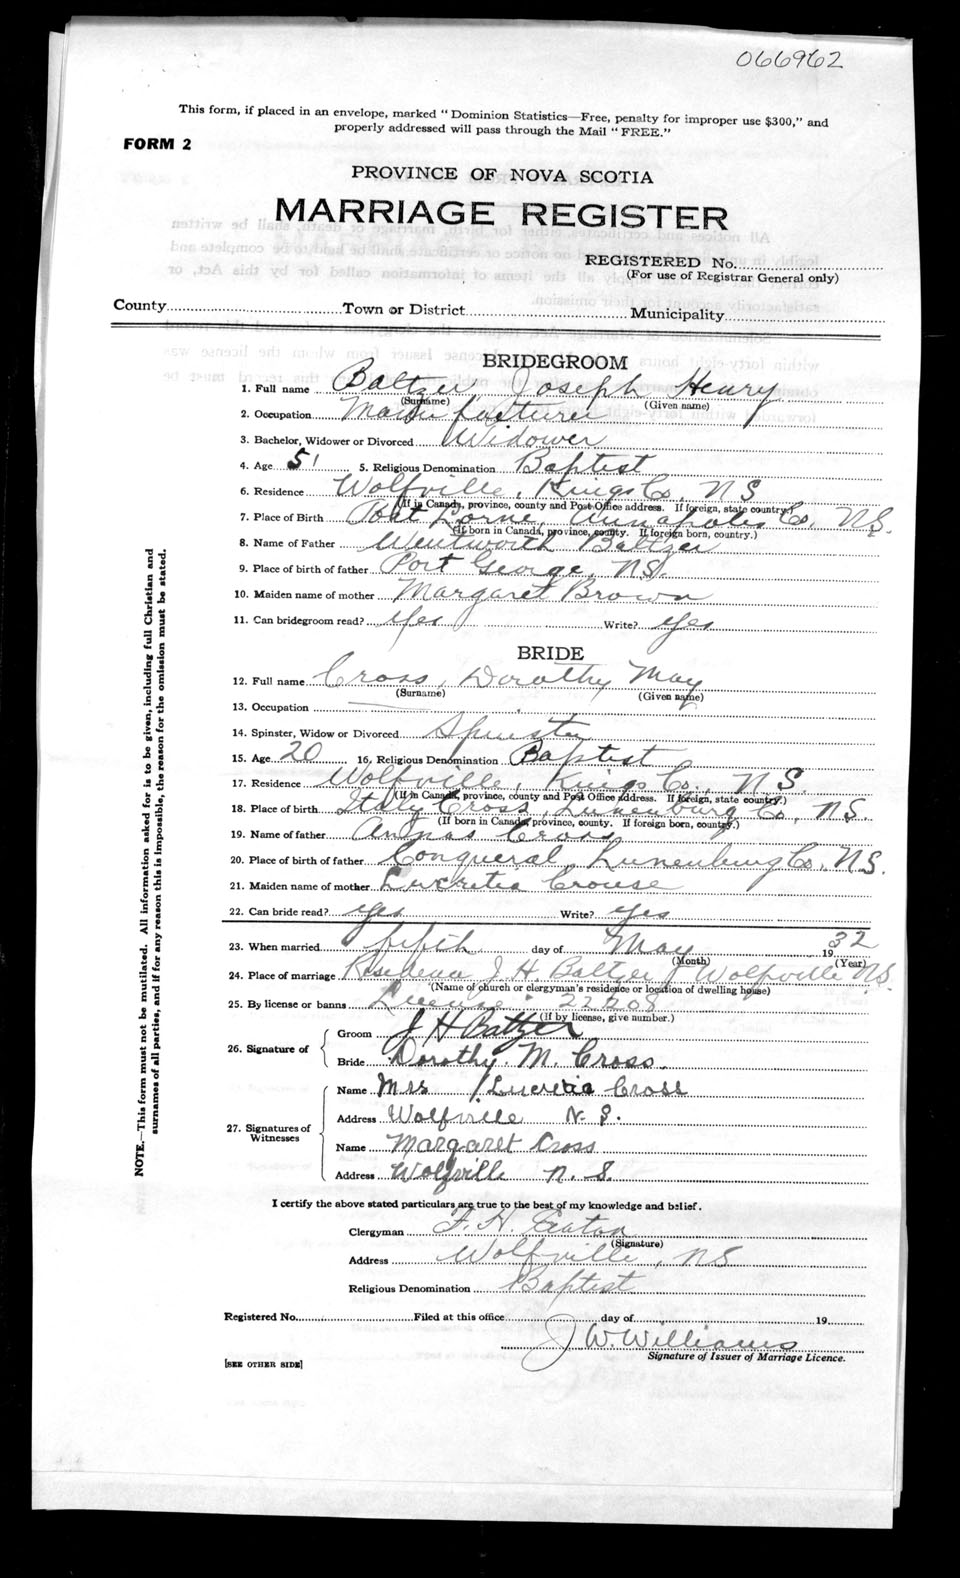 066962
This form, if placed in an envelope, marked "Dominion Statistics—Free, penalty for improper use $300," and
properly addressed will pass through the Mail "FREE."
FORM 2
PROVINCE OF NOVA SCOTIA
MARRIAGE REGISTER
REGISTERED No.
(For use of Registrar General only)
County Town or District Municipality
BRIDEGROOM
1. Full name Baltzer, Joseph Henry
(Surname) (Given name)
2. Occupation Manufacturer
3. Bachelor, Widower or Divorced Widower
4. Age 51 5. Religious Denomination Baptist
6. Residence Wolfville, Kings Co, NS
(If in Canada, province, county and Post Office address. If foreign, state country.)
7. Place of Birth Port Lorne, Annapolis Co, NS.
(If born in Canada, province, county. If foreign born, country.)
8. Name of Father Wentworth Baltzer
9. Place of birth of father Port George, NS.
10. Maiden name of mother Margaret Brown
11. Can bridegroom read? Yes Write? Yes
BRIDE
12. Full name Cross, Dorothy May
(Surname) (Given name)
13. Occupation
14. Spinster, Widow or Divorced Spinster
15. Age 20 16. Religious Denomination Baptist
17. Residence Wolfville, Kings Co, NS.
(If in Canada, province, county and Post Office address. If foreign, state country.)
18. Place of birth Italy Cross, Lunenburg Co, NS.
(If born in Canada, province, county. If foreign born, country.)
19. Name of father Cross
20. Place of birth of father Conquerall, Lunenburg Co. NS.
21. Maiden name of mother Lucretia Crouse
22. Can bride read? Yes Write? Yes
23. When married fifth day of May 1932
(Month) (Year)
24. Place of marriage Residence J. H. Baltzer, Wolfville NS.
(Name of church or clergyman's residence or location of dwelling house)
25. By license or banns License 22208
(If by license, give number.)
26. Signature of
Groom J H Baltzer
Bride Dorothy. M. Cross.
27. Signatures of Witnesses
Name Mrs Lucretia Cross
Address Wolfville N. S.
Name Margaret Cross
Address Wolfville n. s.
I certify the above stated particulars are true to the best of my knowledge and belief.
Clergyman F. H. Eaton
(Signature)
Address Wolfville, NS
Religious Denomination Baptist
Registered No. Filed at this office day of 19
J W. Williams
Signature of Issuer of Marriage Licence.
[SEE OTHER SIDE]
NOTE.—This form must not be mutilated. All information asked for is to be given, including full Christian and
surnames of all parties, and if for any reason this is impossible, the reason for the omission must be stated.